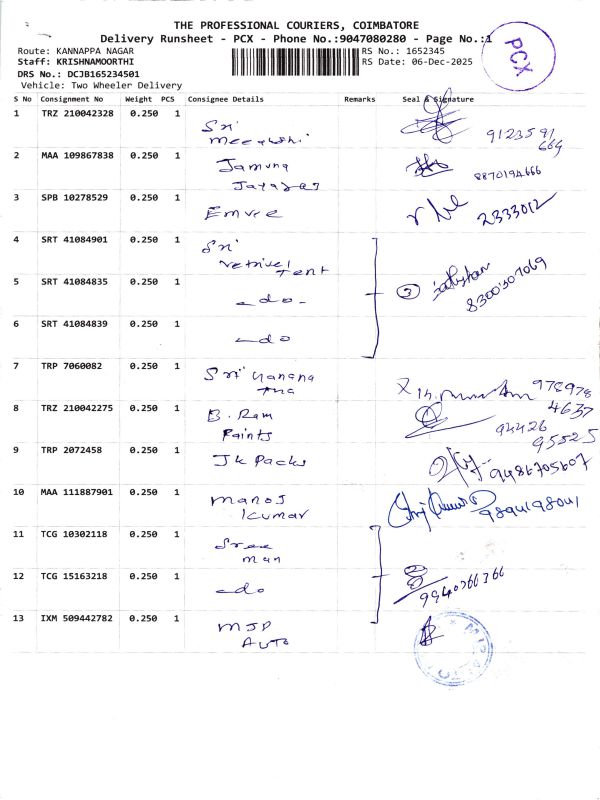 THE PROFESSIONAL COURIERS, COIMBATORE
Delivery Runsheet - PCX - Phone No.:9047080280 - Page No.:1
Route: KANNAPPA NAGAR
RS No.: 1652345
Staff: KRISHNAMOORTHI
RS Date: 06-Dec-2025
DRS No.: DCJB165234501
Vehicle: Two Wheeler Delivery
PCX
S No Consignment No Weight PCS Consignee Details Remarks Seal & Signature
1 TRZ 210042328 0.250 1 Sri
Meenakshi 9123591
664
2 MAA 109867838 0.250 1 Jamuna 8870194666
3 SPB 10278529 0.250 1 2333012
4 SRT 41084901 0.250 1 Sri
Vetrivel
Tent
5 SRT 41084835 0.250 1 -do- 3 8300307069
6 SRT 41084839 0.250 1 -do
7 TRP 7060082 0.250 1 Sri 978978
4637
8 TRZ 210042275 0.250 1 B. Ram
Paints 94426
95525
9 TRP 2072458 0.250 1 Jk Packs 9486705607
10 MAA 111887901 0.250 1 Manoj
Kumar 9894198041
11 TCG 10302118 0.250 1 Sree
Man
12 TCG 15163218 0.250 1 -do 9940366366
13 IXM 509442782 0.250 1 MJP
AUTO